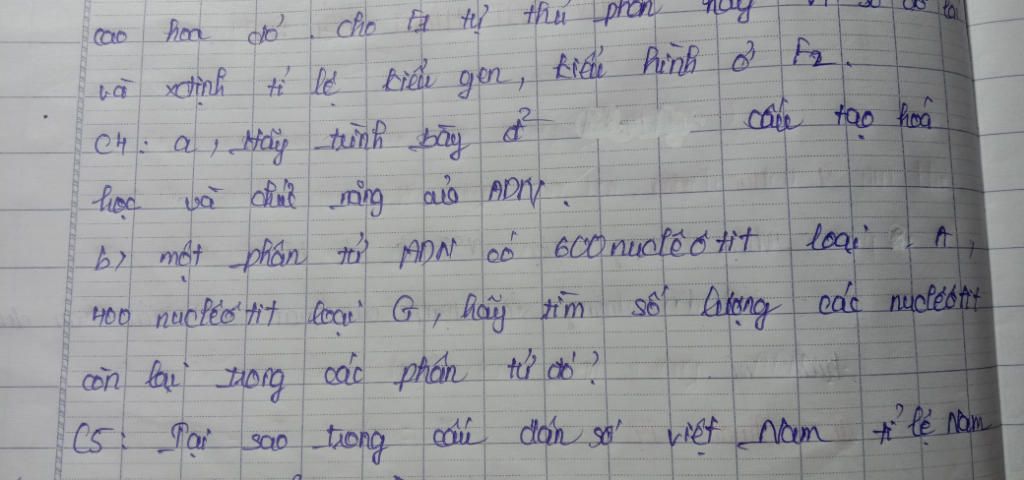 cao hoa đỏ. Cho F1 tự thụ phấn hãy
và xđịnh tỉ lệ kiểu gen, kiểu hình ở F2.
C4: a, Hãy trình bày đ² cấu tạo hoá
học và chức năng của ADN.
b) một phân tử ADN có 600 nuclêôtit loại A,
400 nuclêôtit loại G, hãy tìm số lượng các nuclêôtit
còn lại trong các phân tử đó?
C5: Tại sao trong cấu dân số việt Nam tỉ lệ Nam